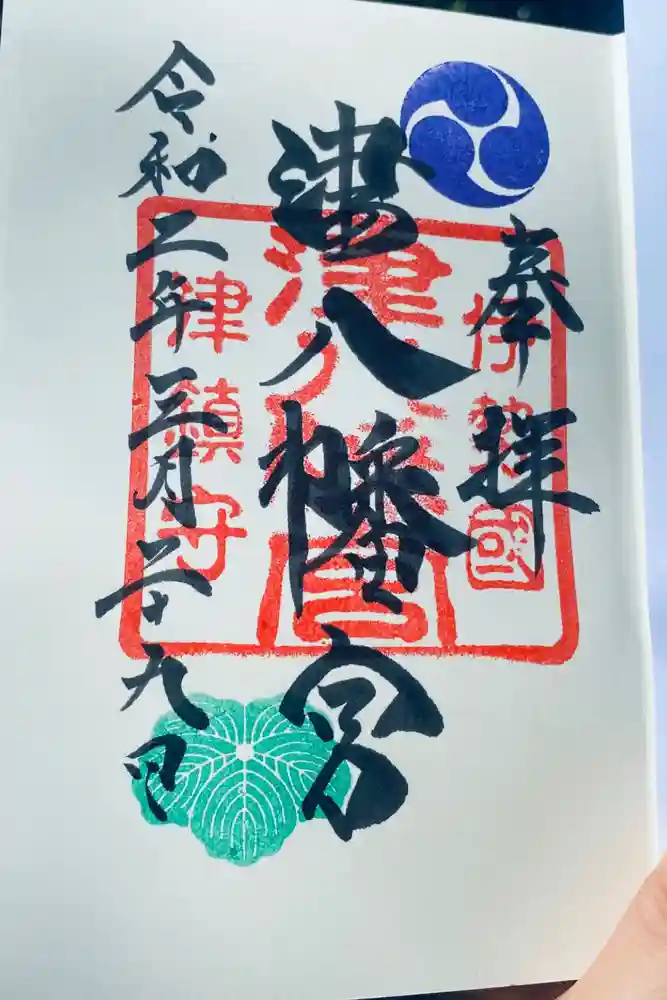 奉拝
津八幡宮
令和二年三月二十九日
伊勢國
津八幡宮
津鎮守